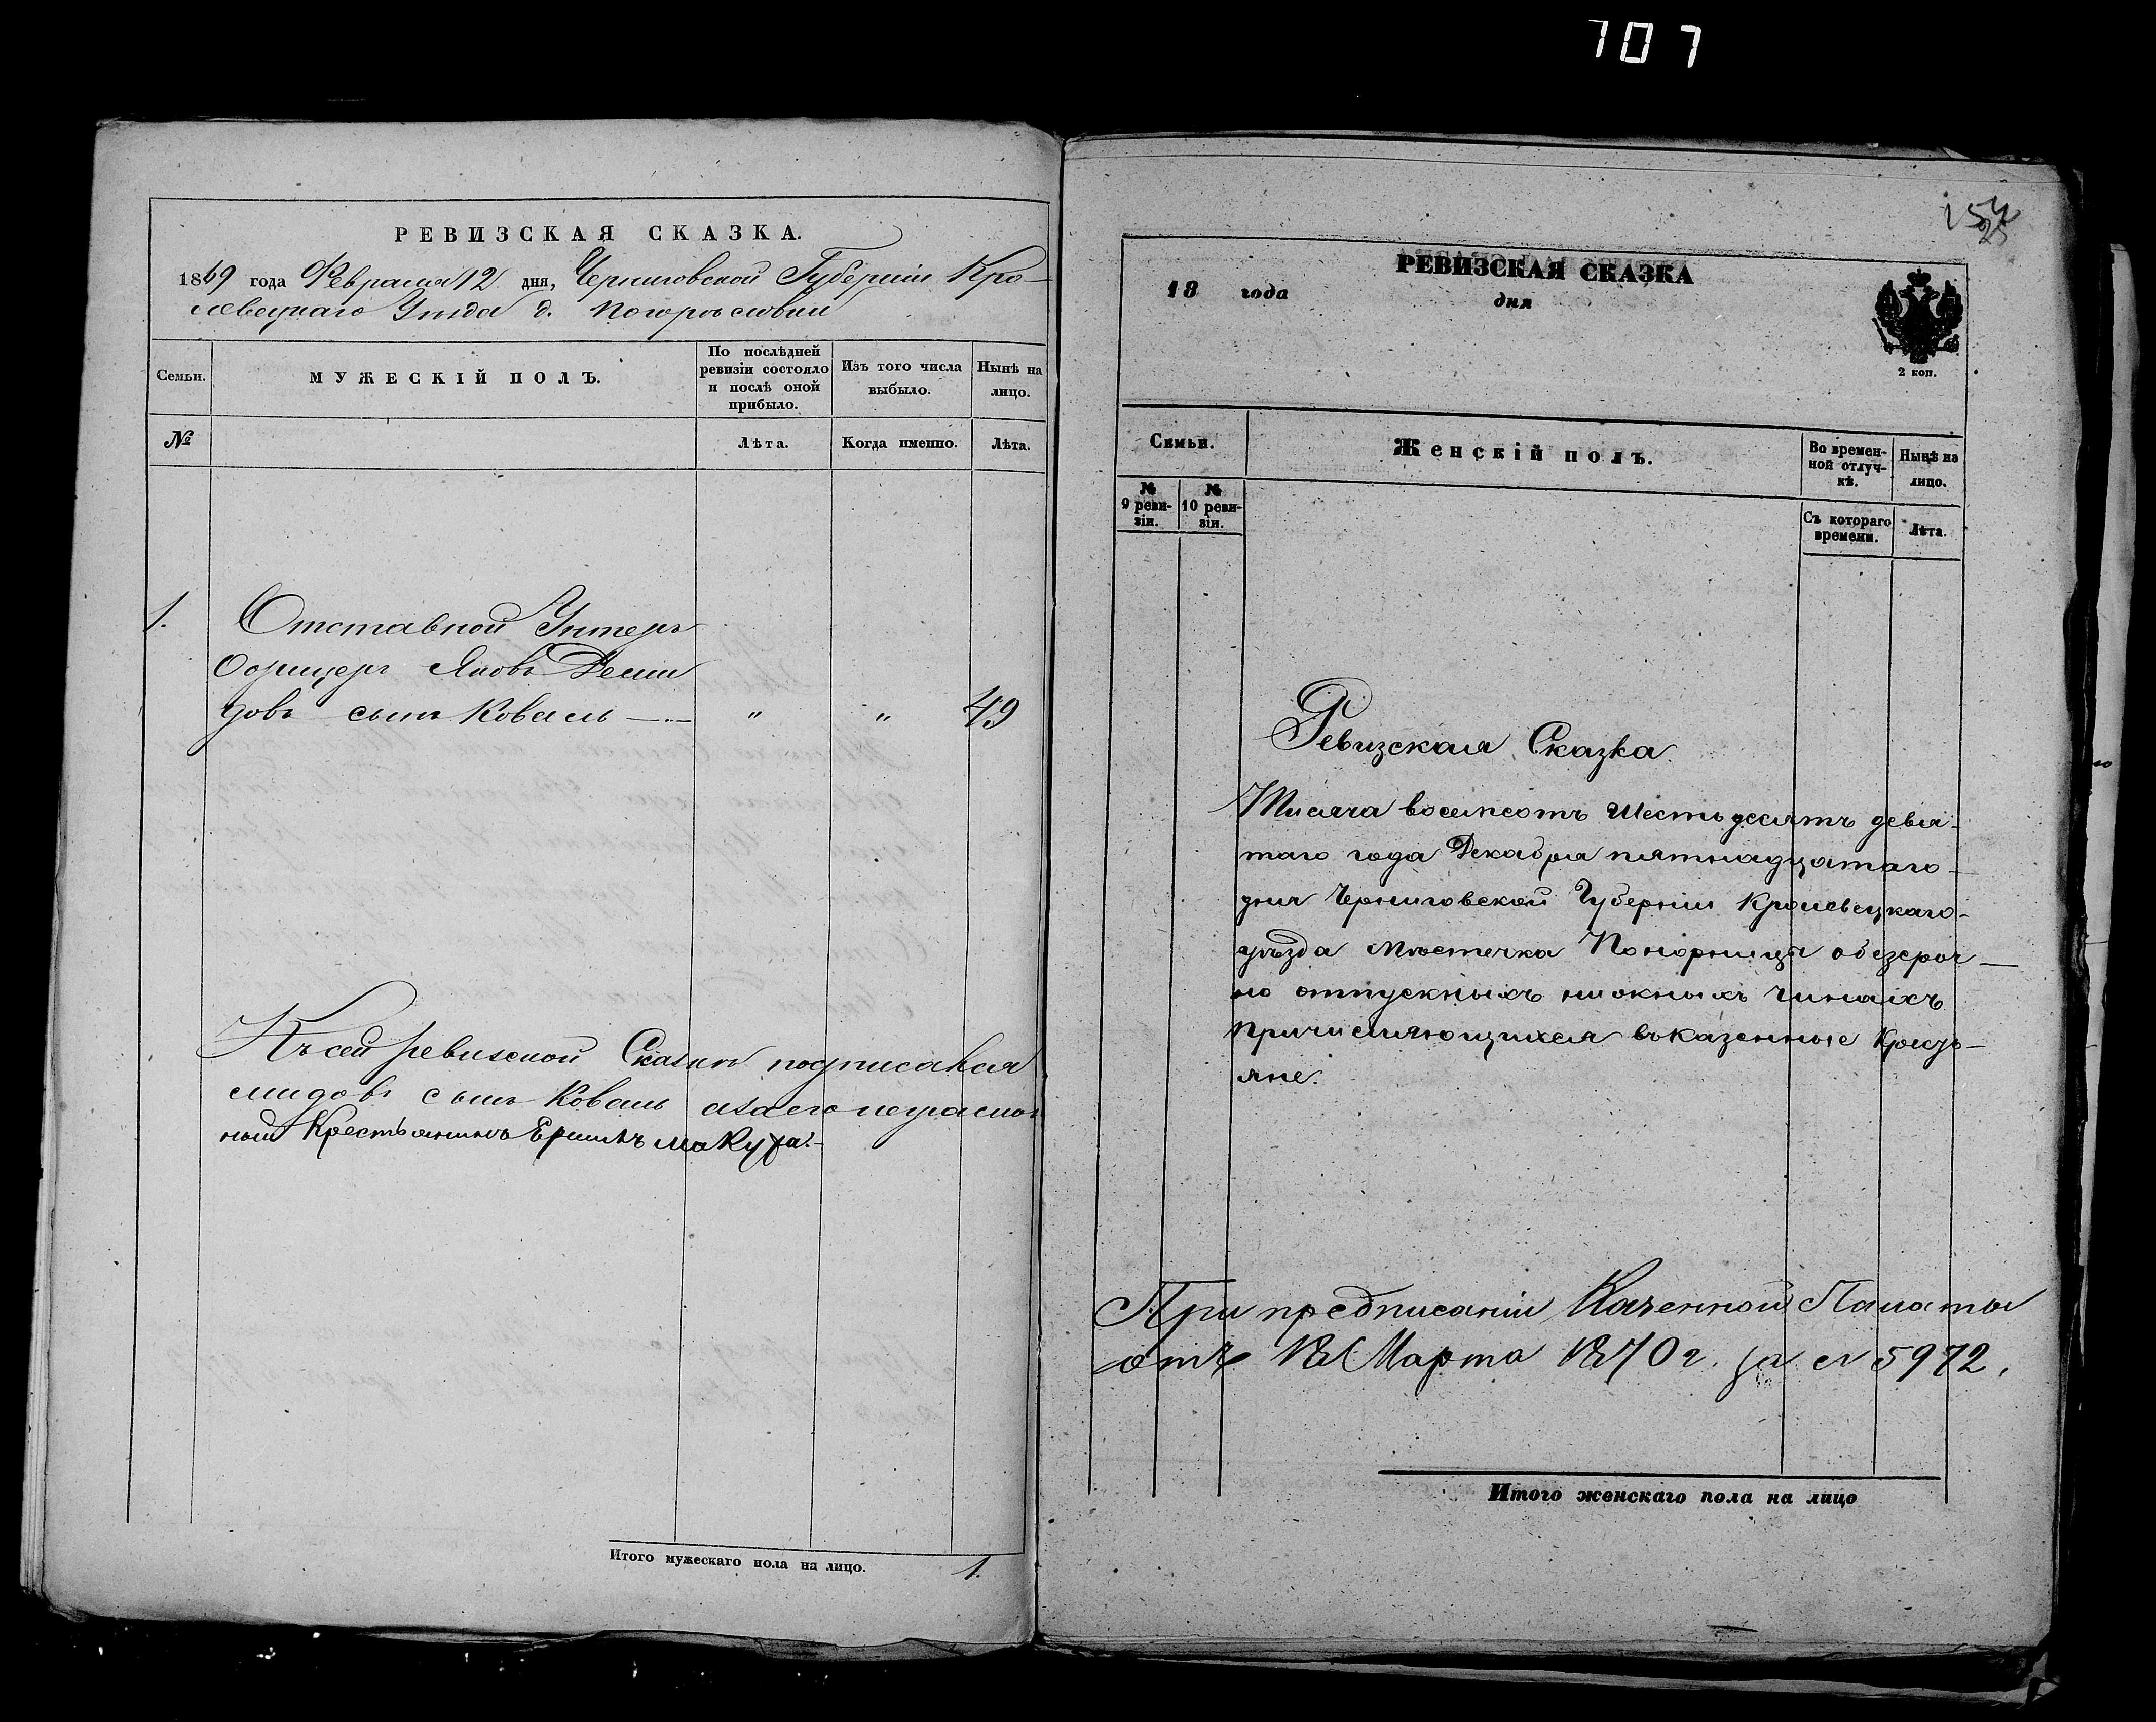 707
РЕВИЗСКАЯ СКАЗКА.
1869 года Февраля 12 дня, Черниговской Губерніи Кро-
левецкаго Уѣзда д. Погорѣловки
Семьи.
МУЖЕСКІЙ ПОЛЪ.
По послѣдней ревизіи состояло и послѣ оной прибыло.
Изъ того числа выбыло.
Нынѣ на лицо.
№
Лѣта.
Когда именно.
Лѣта.
1. Отставной Унтеръ
Офицеръ Яковъ Деми
довъ сынъ Коваль — " " 49
Къ сей ревизской Сказкѣ подписался
мидовъ сынъ Коваль а за его неграмот
ный Крестьянинъ
Итого мужескаго пола на лицо. 1.
154
25
РЕВИЗСКАЯ СКАЗКА
18 года дня
2 коп.
Семьи.
Женскій полъ.
Во времен-
ной отлуч-
кѣ.
Нынѣ на
лицо.
№
9 реви-
зіи.
№
10 реви-
зіи.
Съ котораго
времени.
Лѣта.
Ревизская Сказка.
Тисяча восемсотъ шестьдесятъ девя-
таго года Декабря пятнадцатаго
дня Черниговской Губерніи Кролевецкаго
уѣзда Мѣстечка Понорница обезсроч-
но отпускныхъ нижныхъ чинахъ
причисляющихся въ казенные Кресть-
яне.
При предписаніи Казенной Палаты
отъ 18 Марта 1870 г. за № 5972.
Итого женскаго пола на лицо